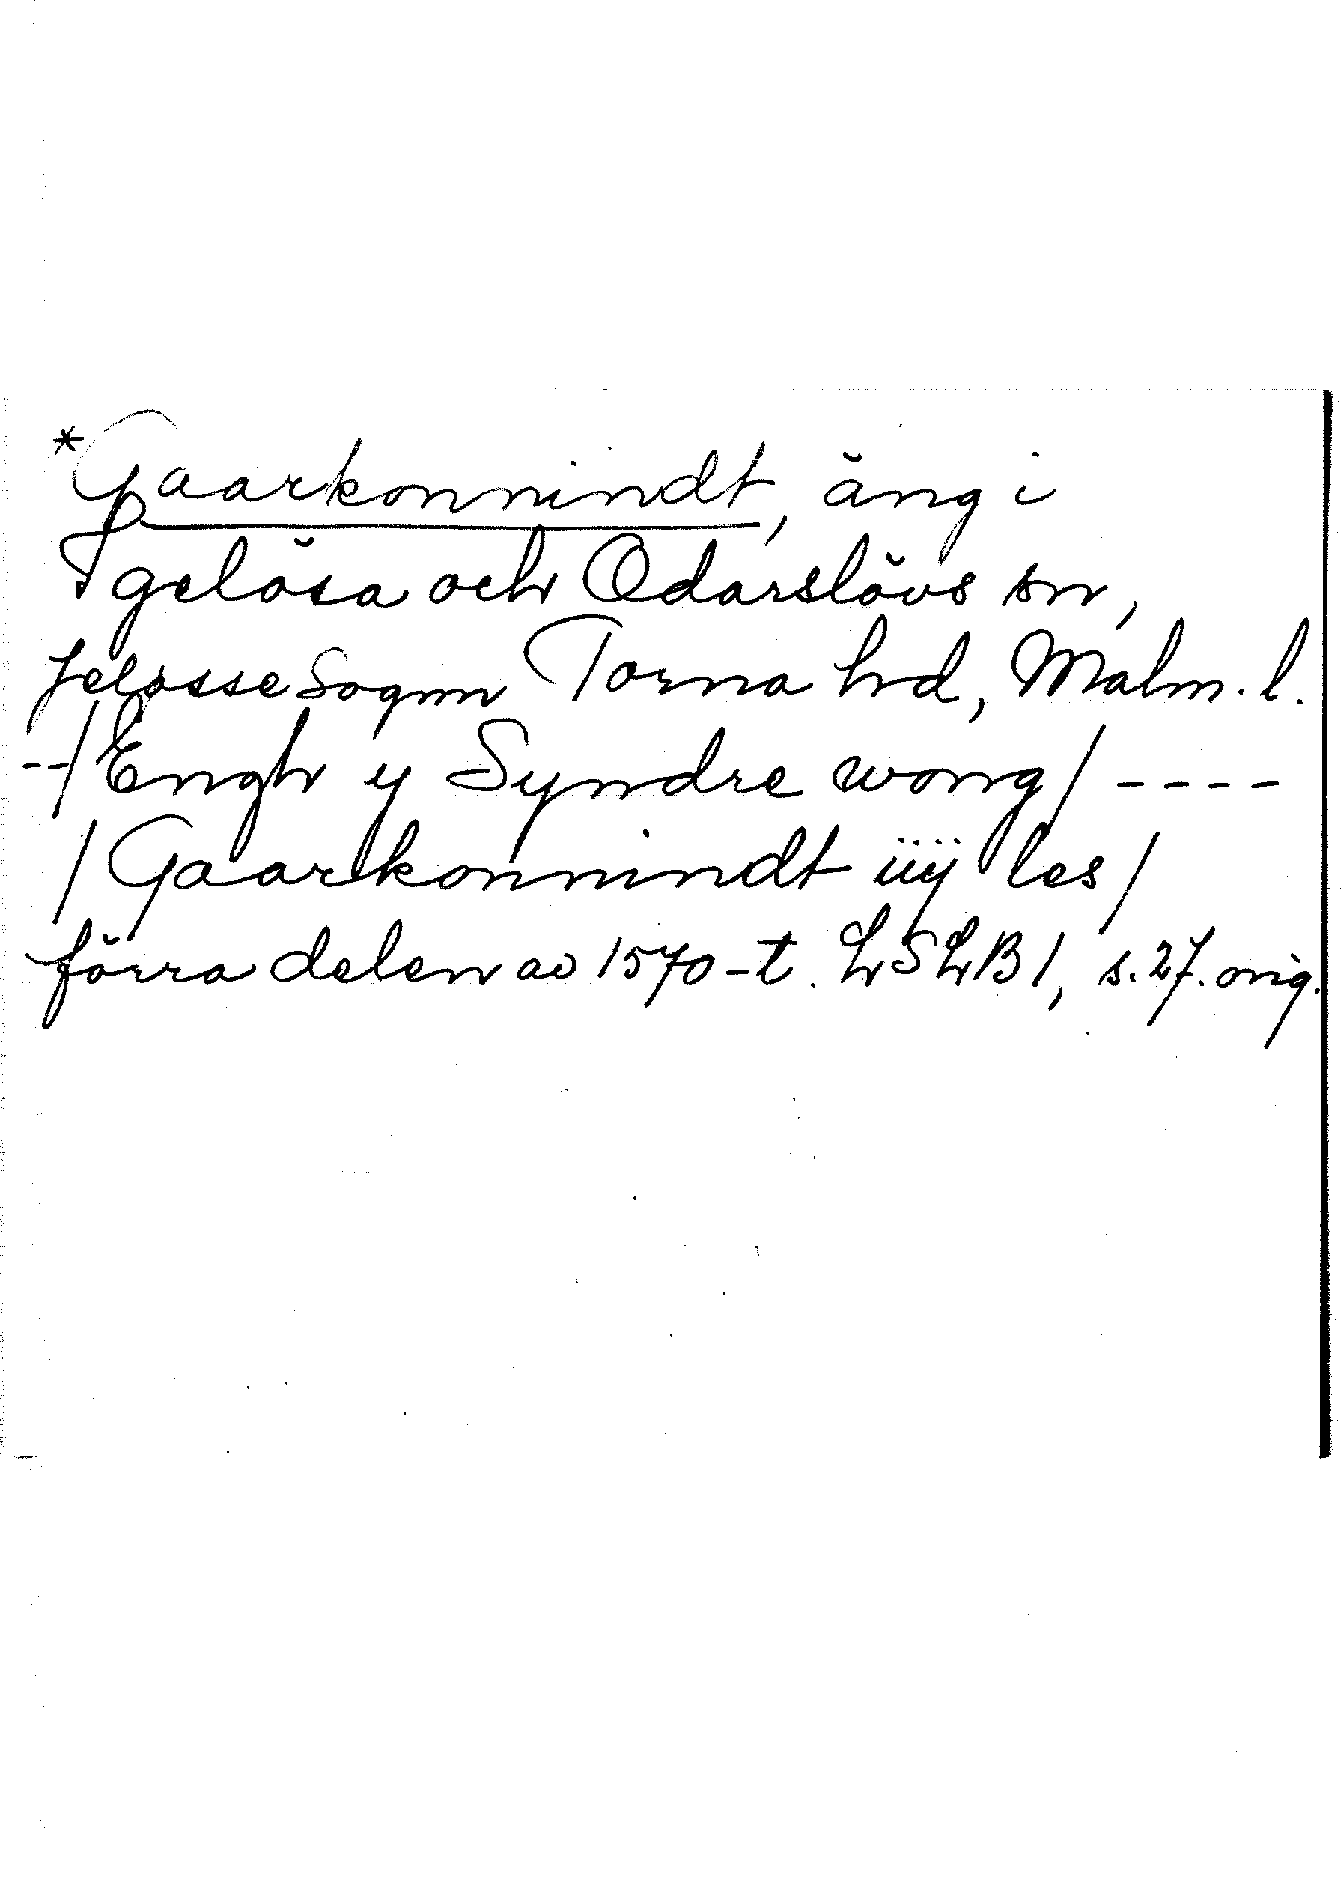 *Gaarkonnindt, äng i
Igelösa och Odarslövs sn,
Jelösse Sognn Torna hd, Malm. l.
--/Engh y Syndre wong/ ----
/Gaarkonnindt iiij les/
förra delen av 1570-t. LSLB 1, s. 27. orig.